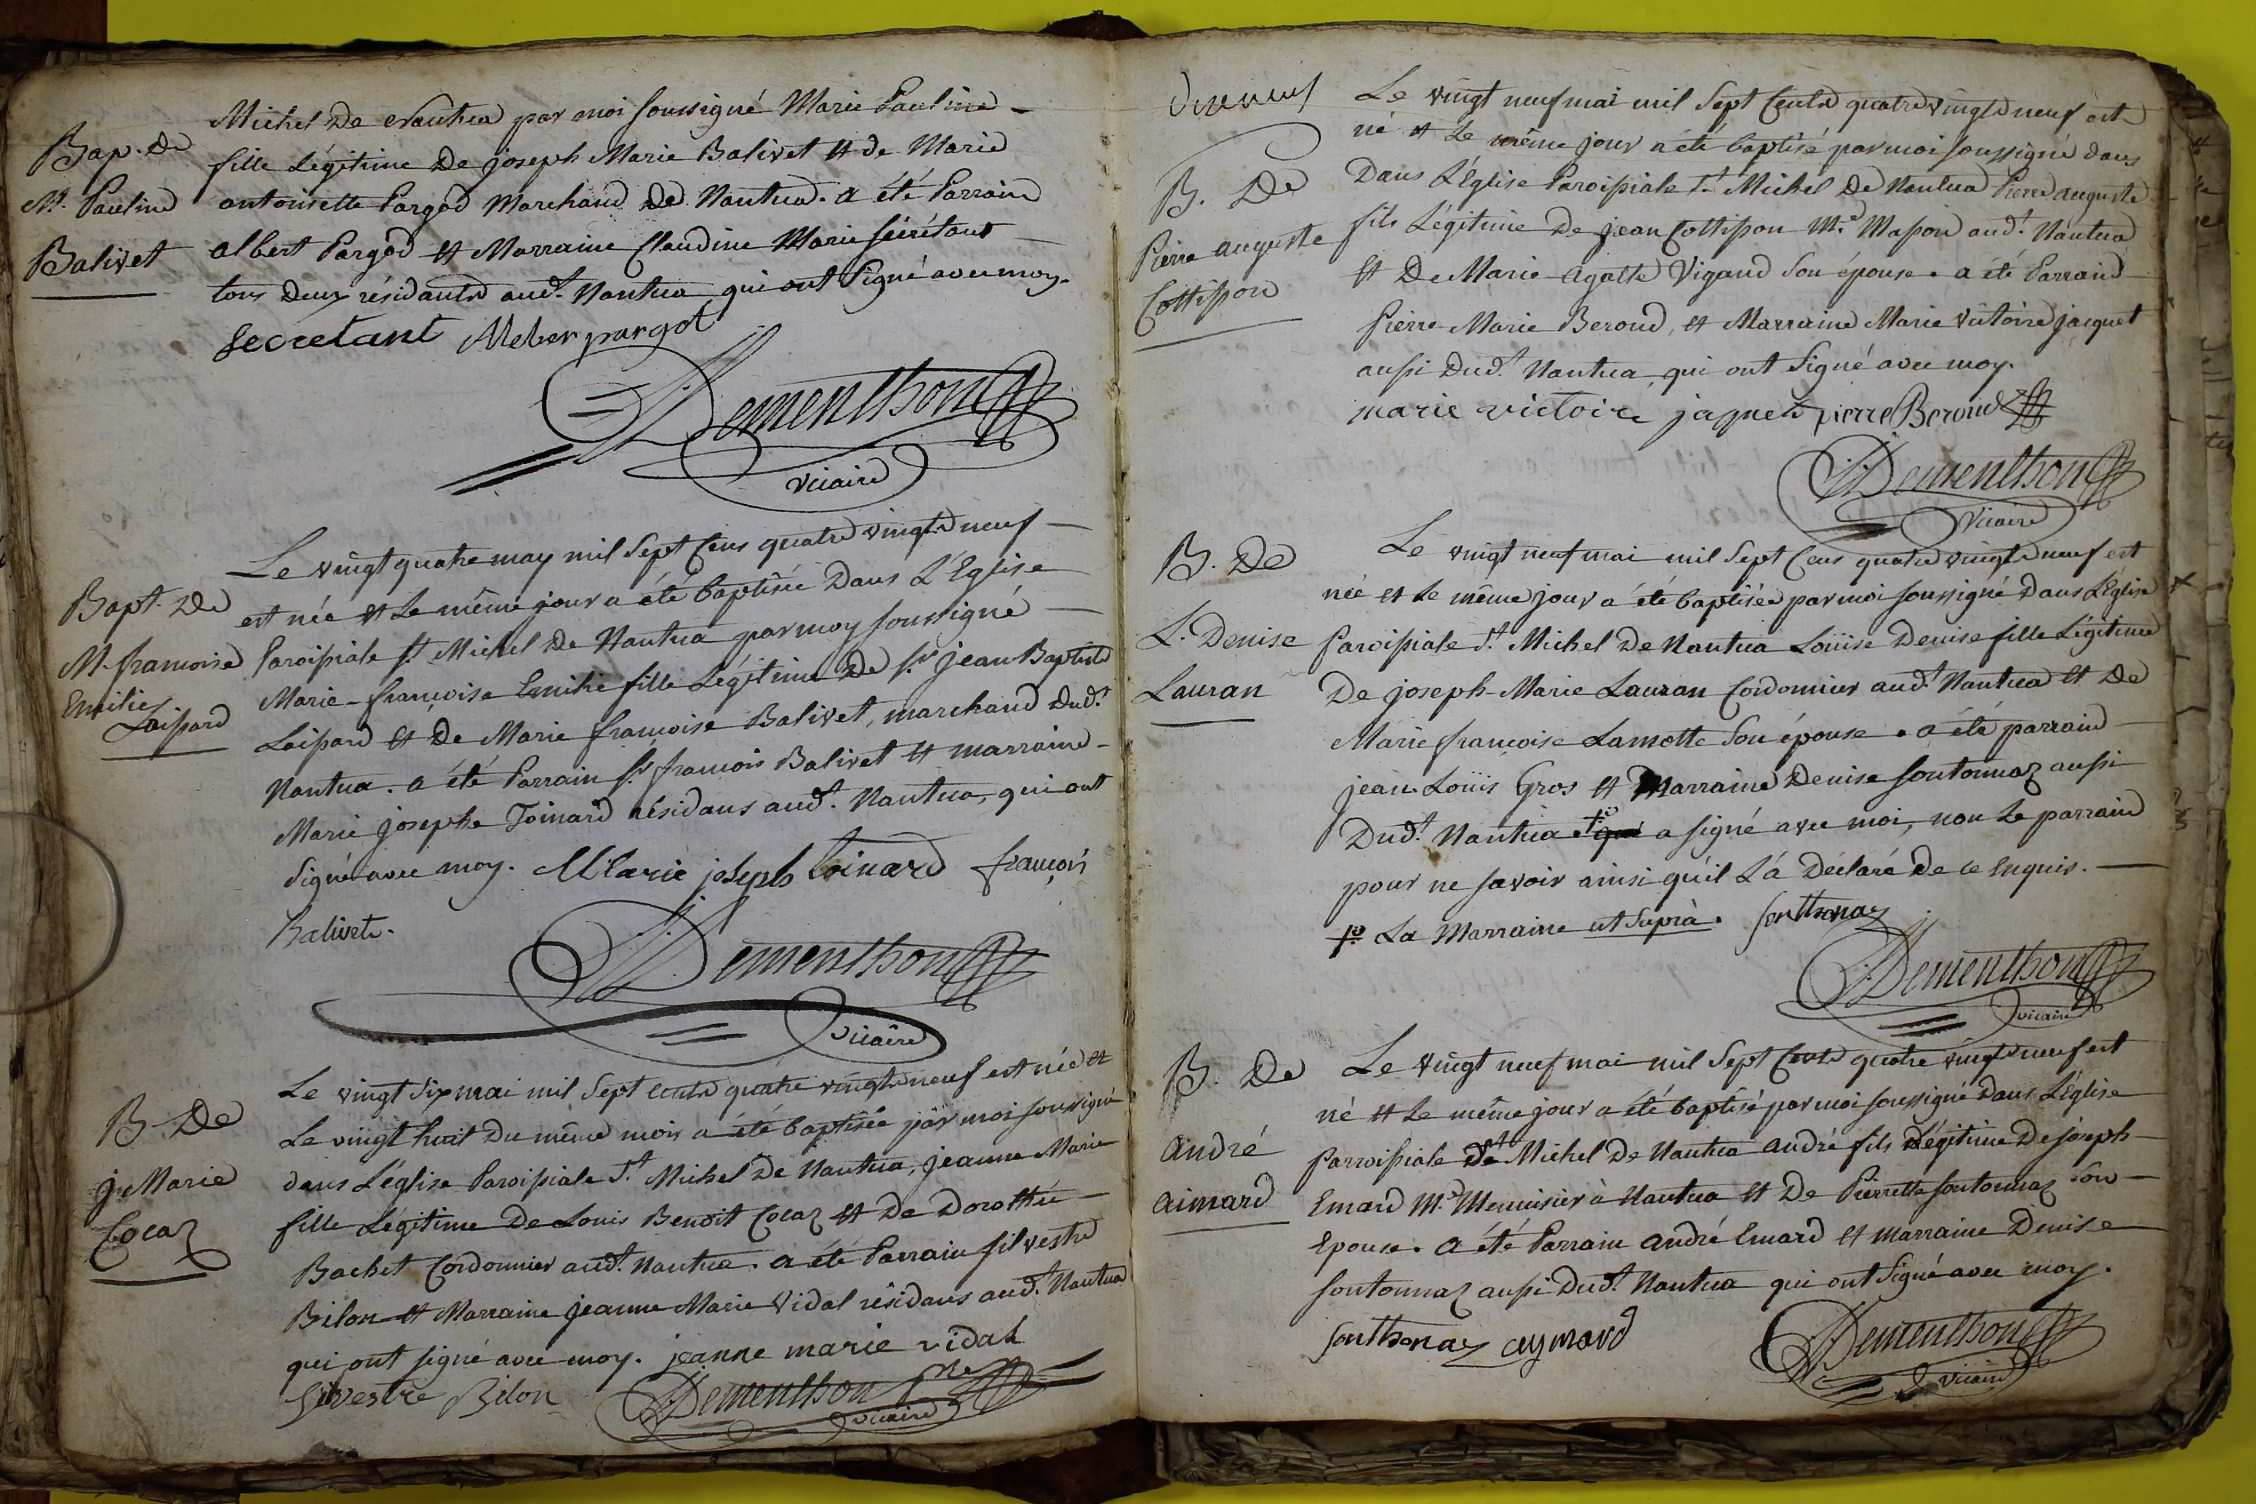 Bap. De
M. Pauline
Balivet
Michel De Nantua par moi soussigné Marie Pauline
fille Légitime De joseph Marie Balivet et de Marie
antoinette Pargod Marchand De Nantua. a été Parrain
albert Pargod et Marraine Claudine Marie secrétant
tous Deux résidants aud.t Nantua qui ont Signé avec moy.
secretant pargot
Dementhon
vicaire
Bapt. De
M. francoise
Emilie
Laissard
Le vingt quatre may mil Sept Cens quatre vingts neuf
est née et Le même jour a été baptisée Dans L'Eglise
Paroissiale s.t Michel De Nantua par moy soussigné
Marie-françoise Emilie fille Légitime De s.r jean Baptiste
Laissard et De Marie françoise Balivet, marchand Dud.t
Nantua. a été Parrain s.r françois Balivet et marraine
Marie josephe Toinard résidans aud.t Nantua, qui ont
signé avec moy. Marie joseph toinard françois
Balivet.
Dementhon
vicaire
B. De
j. Marie
Cocaz
Le vingt Six mai mil Sept cents quatre vingts neuf est née et
Le vingt huit Du même mois a été baptisée par moi soussigné
dans L'église Paroissiale S.t Michel De Nantua, jeanne Marie
fille Légitime De Louis Benoit Cocaz et De Dorothée
Bachet Cordonnier aud.t Nantua. a été Parrain silvestre
Bilon et Marraine jeanne Marie Vidal résidans aud.t Nantua
qui ont signé avec moy. jeanne marie vidal
silvestre Bilon
Dementhon
vicaire
B. De
Pierre auguste
Cottisson
Le vingt neuf mai mil Sept Cents quatre vingts neuf est
né et Le même jour a été baptisé par moi soussigné dans
Dans L'Église Paroissiale S.t Michel De Nantua Pierre auguste
fils Légitime De jean Cottisson M.e Masson aud.t Nantua
et De Marie Agathe Vigand Son épouse. a été Parrain
Pierre Marie Beroud, et Marraine Marie Victoire jacquet
aussi Dud.t Nantua qui ont Signé avec moy.
marie victoire jaques pierre Beroud
Dementhon
Vicaire
B. De
L. Denise
Lauran
Le vingt neuf mai mil Sept Cens quatre vingts neuf est
née et Le même jour a été baptisée par moi soussigné Dans L'église
Paroissiale S.t Michel De Nantua Louise Denise fille Légitime
De joseph-Marie Lauran Cordonnier aud.t Nantua et De
Marie françoise Lamotte Son épouse. a été parrain
jean-Louis Gros et Marraine Denise sontonnaz aussi
Dud.t Nantua qui a signé avec moi, non Le parrain
pour ne savoir ainsi qu'il L'a Déclaré De ce Enquis.
La Marraine ut Suprà. sonthonaz
Dementhon
vicaire
B. De
André
aimard
Le vingt neuf mai mil Sept Cents quatre vingts neuf est
né et Le même jour a été baptisé par moi soussigné Dans L'église
Parroissiale S.t Michel De Nantua André fils Légitime De joseph
Emard M.e Menuisier à Nantua et De Pierrette sontonnaz Son
Epouse. a été Parrain André Emard et marraine Denise
sontonnaz aussi Dud.t Nantua qui ont Signé avec moy.
sonthonaz aymard
Dementhon
vicaire